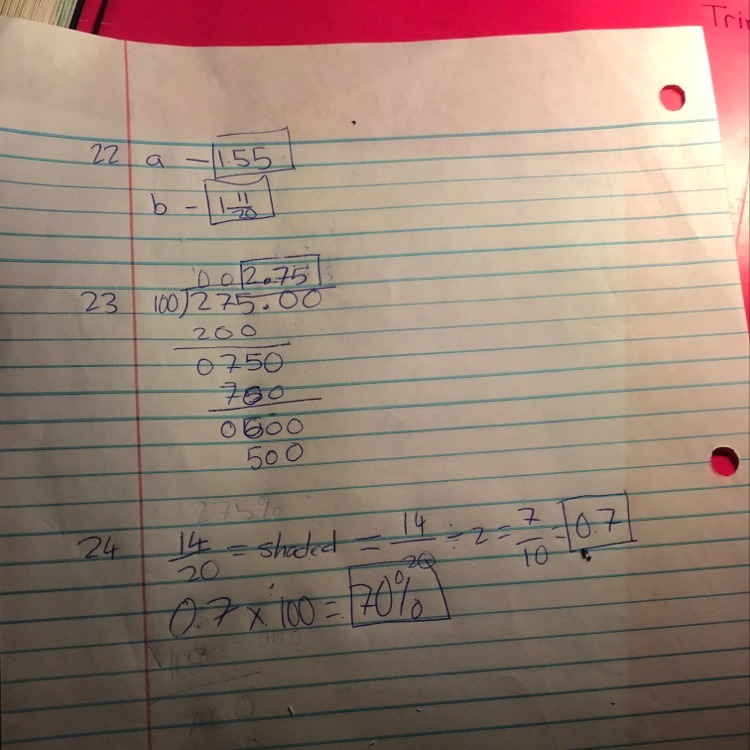 Tri
22 a - 1.55
b - 1 11/20
002.75
23 100)275.00
200
0750
700
0500
500
275%
24 14/20 = shaded = 14/20 ÷ 2 = 7/10 = 0.7
0.7 x 100 = 70%